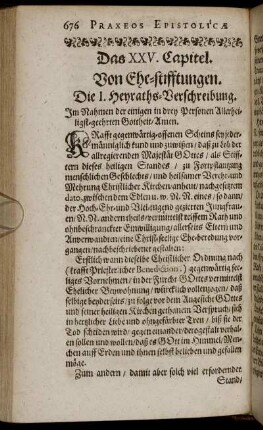 676 PRAXEOS EPISTOLICÆ
Das XXV. Capitel.
Von Ehe-stifftungen.
Die I. Heyraths-Verschreibung.
Im Nahmen der einigen in drey Personen Allerhei-
ligst-geehrten Gottheit/ Amen.
KRafft gegenwärtig-offenen Scheins sey jeder-
männiglich kund und zu wissen/ daß zu Lob der
allregierenden Majestät GOttes/ als Stiff-
tern dieses heiligen Standes/ zu Fortpflantzung
menschlichen Geschlechts/ und heilsamer Vermehr-
Mehrung Christlicher Kirchen/ anheut/ nachgesetztem
dato, zwischen dem Edlen u. N. N. eines/ so dann/
der Hoch-Ehr- und Tugend gezierten Jungfrau-
en/ N. N. andern theils/ vermittelst reiffem Rath und
ohnbeschranckter Einwilligung/ allerseits Eltern und
Anverwandten/ eine Christ-selige Ehe-beredung vor-
gangen/ nachbeschriebener gestalten:
Erstlich/ wann dieselbe Christlicher Ordnung nach
(krafft Priesterlicher Benediction,) gegenwärtig see-
liges Vornehmen/ in der Furcht GOttes vermittelst
Ehelicher Beywohnung/ würcklich vollenzogen/ daß
selbige beyderseits/ zu folge vor dem Angesicht GOttes
und seiner heiligen Kirchen gethanem Verspruch/ sich
in hertzlicher Liebe und ohngefärbter Treu/ biß sie der
Tod scheiden wird/ gegen einander/ dero gestalt verhal-
ten sollen und wollen/ daß es GOtt im Himmel/ Men-
schen auff Erden und ihnen selbst belieben und gefallen
möge.
Zum andern/ damit aber solch viel erfordernder
Stand/